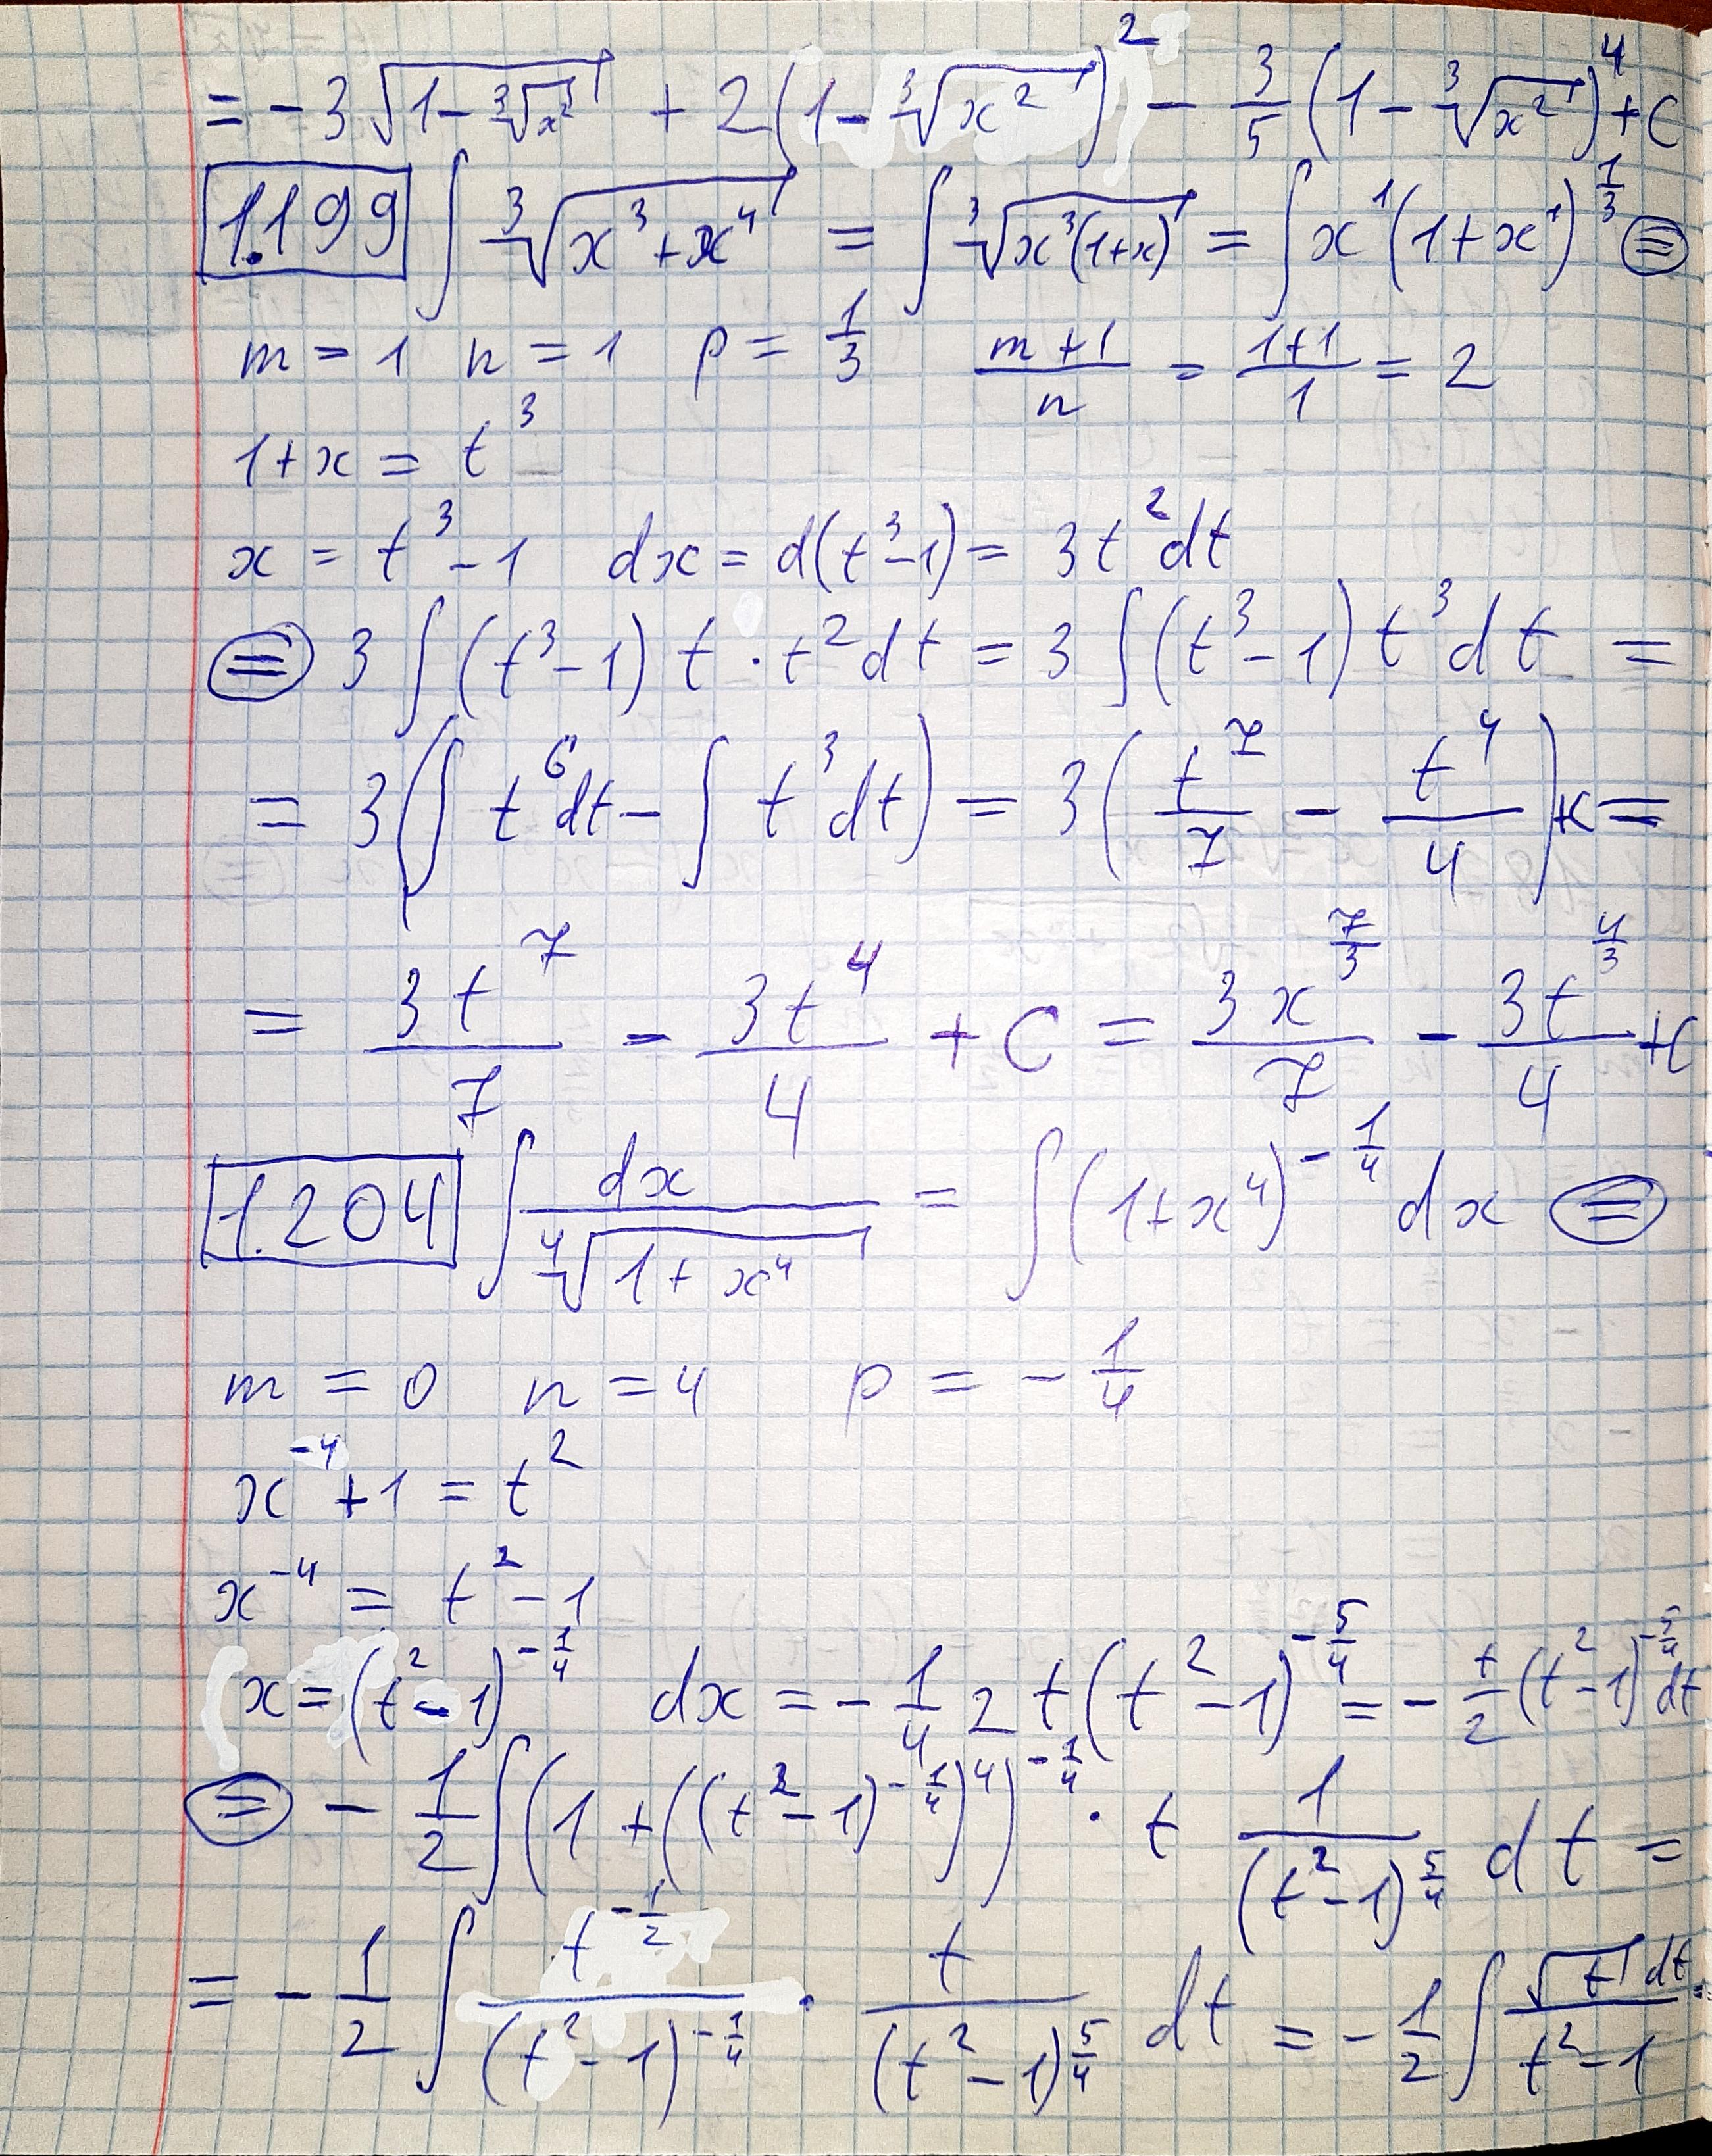 = -3√(1-∛x²) + 2(1-∛x²)² - 3/5 (1-∛x²)⁴ + C
1.199 ∫ ∛(x³+x⁴) = ∫ ∛(x³(1+x)) = ∫ x¹(1+x¹)^(1/3) ⊜
m = 1 n = 1 p = 1/3 (m+1)/n = (1+1)/1 = 2
1+x = t³
x = t³-1 dx = d(t³-1) = 3t²dt
⊜ 3∫(t³-1) t · t²dt = 3∫(t³-1) t³dt =
= 3(∫t⁶dt - ∫t³dt) = 3(t⁷/7 - t⁴/4)+C =
= 3t⁷/7 - 3t⁴/4 + C = 3x^(7/3)/7 - 3t^(4/3)/4 + C
1.204 ∫ dx/∜(1+x⁴) = ∫(1+x⁴)^(-1/4) dx ⊜
m = 0 n = 4 p = -1/4
x⁻⁴+1 = t²
x⁻⁴ = t²-1
x = (t²-1)^(-1/4) dx = -1/4 2t(t²-1)^(-5/4) = -t/2 (t²-1)^(-5/4) dt
⊜ -1/2 ∫(1+((t²-1)^(-1/4))⁴)^(-1/4) · t 1/(t²-1)^(5/4) dt =
= -1/2 ∫ t^(-1/2)/(t²-1)^(-1/4) · t/(t²-1)^(5/4) dt = -1/2 ∫ √t dt/(t²-1) =